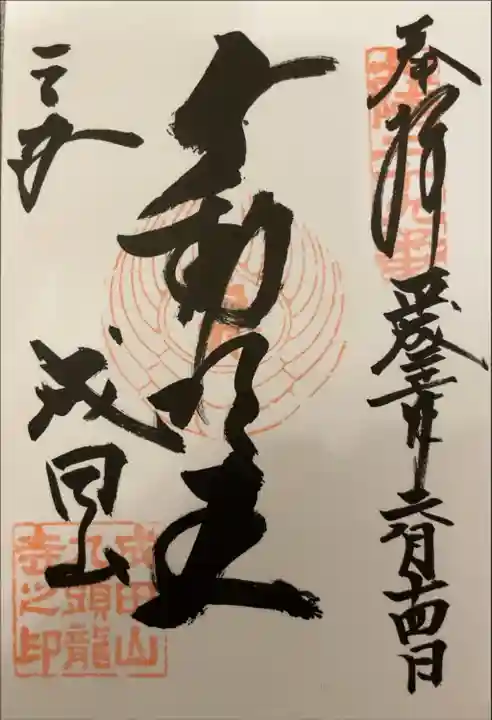 奉拝 平成三十年六月十四日
不動明王
成田山
成田山
九頭龍
寺之印